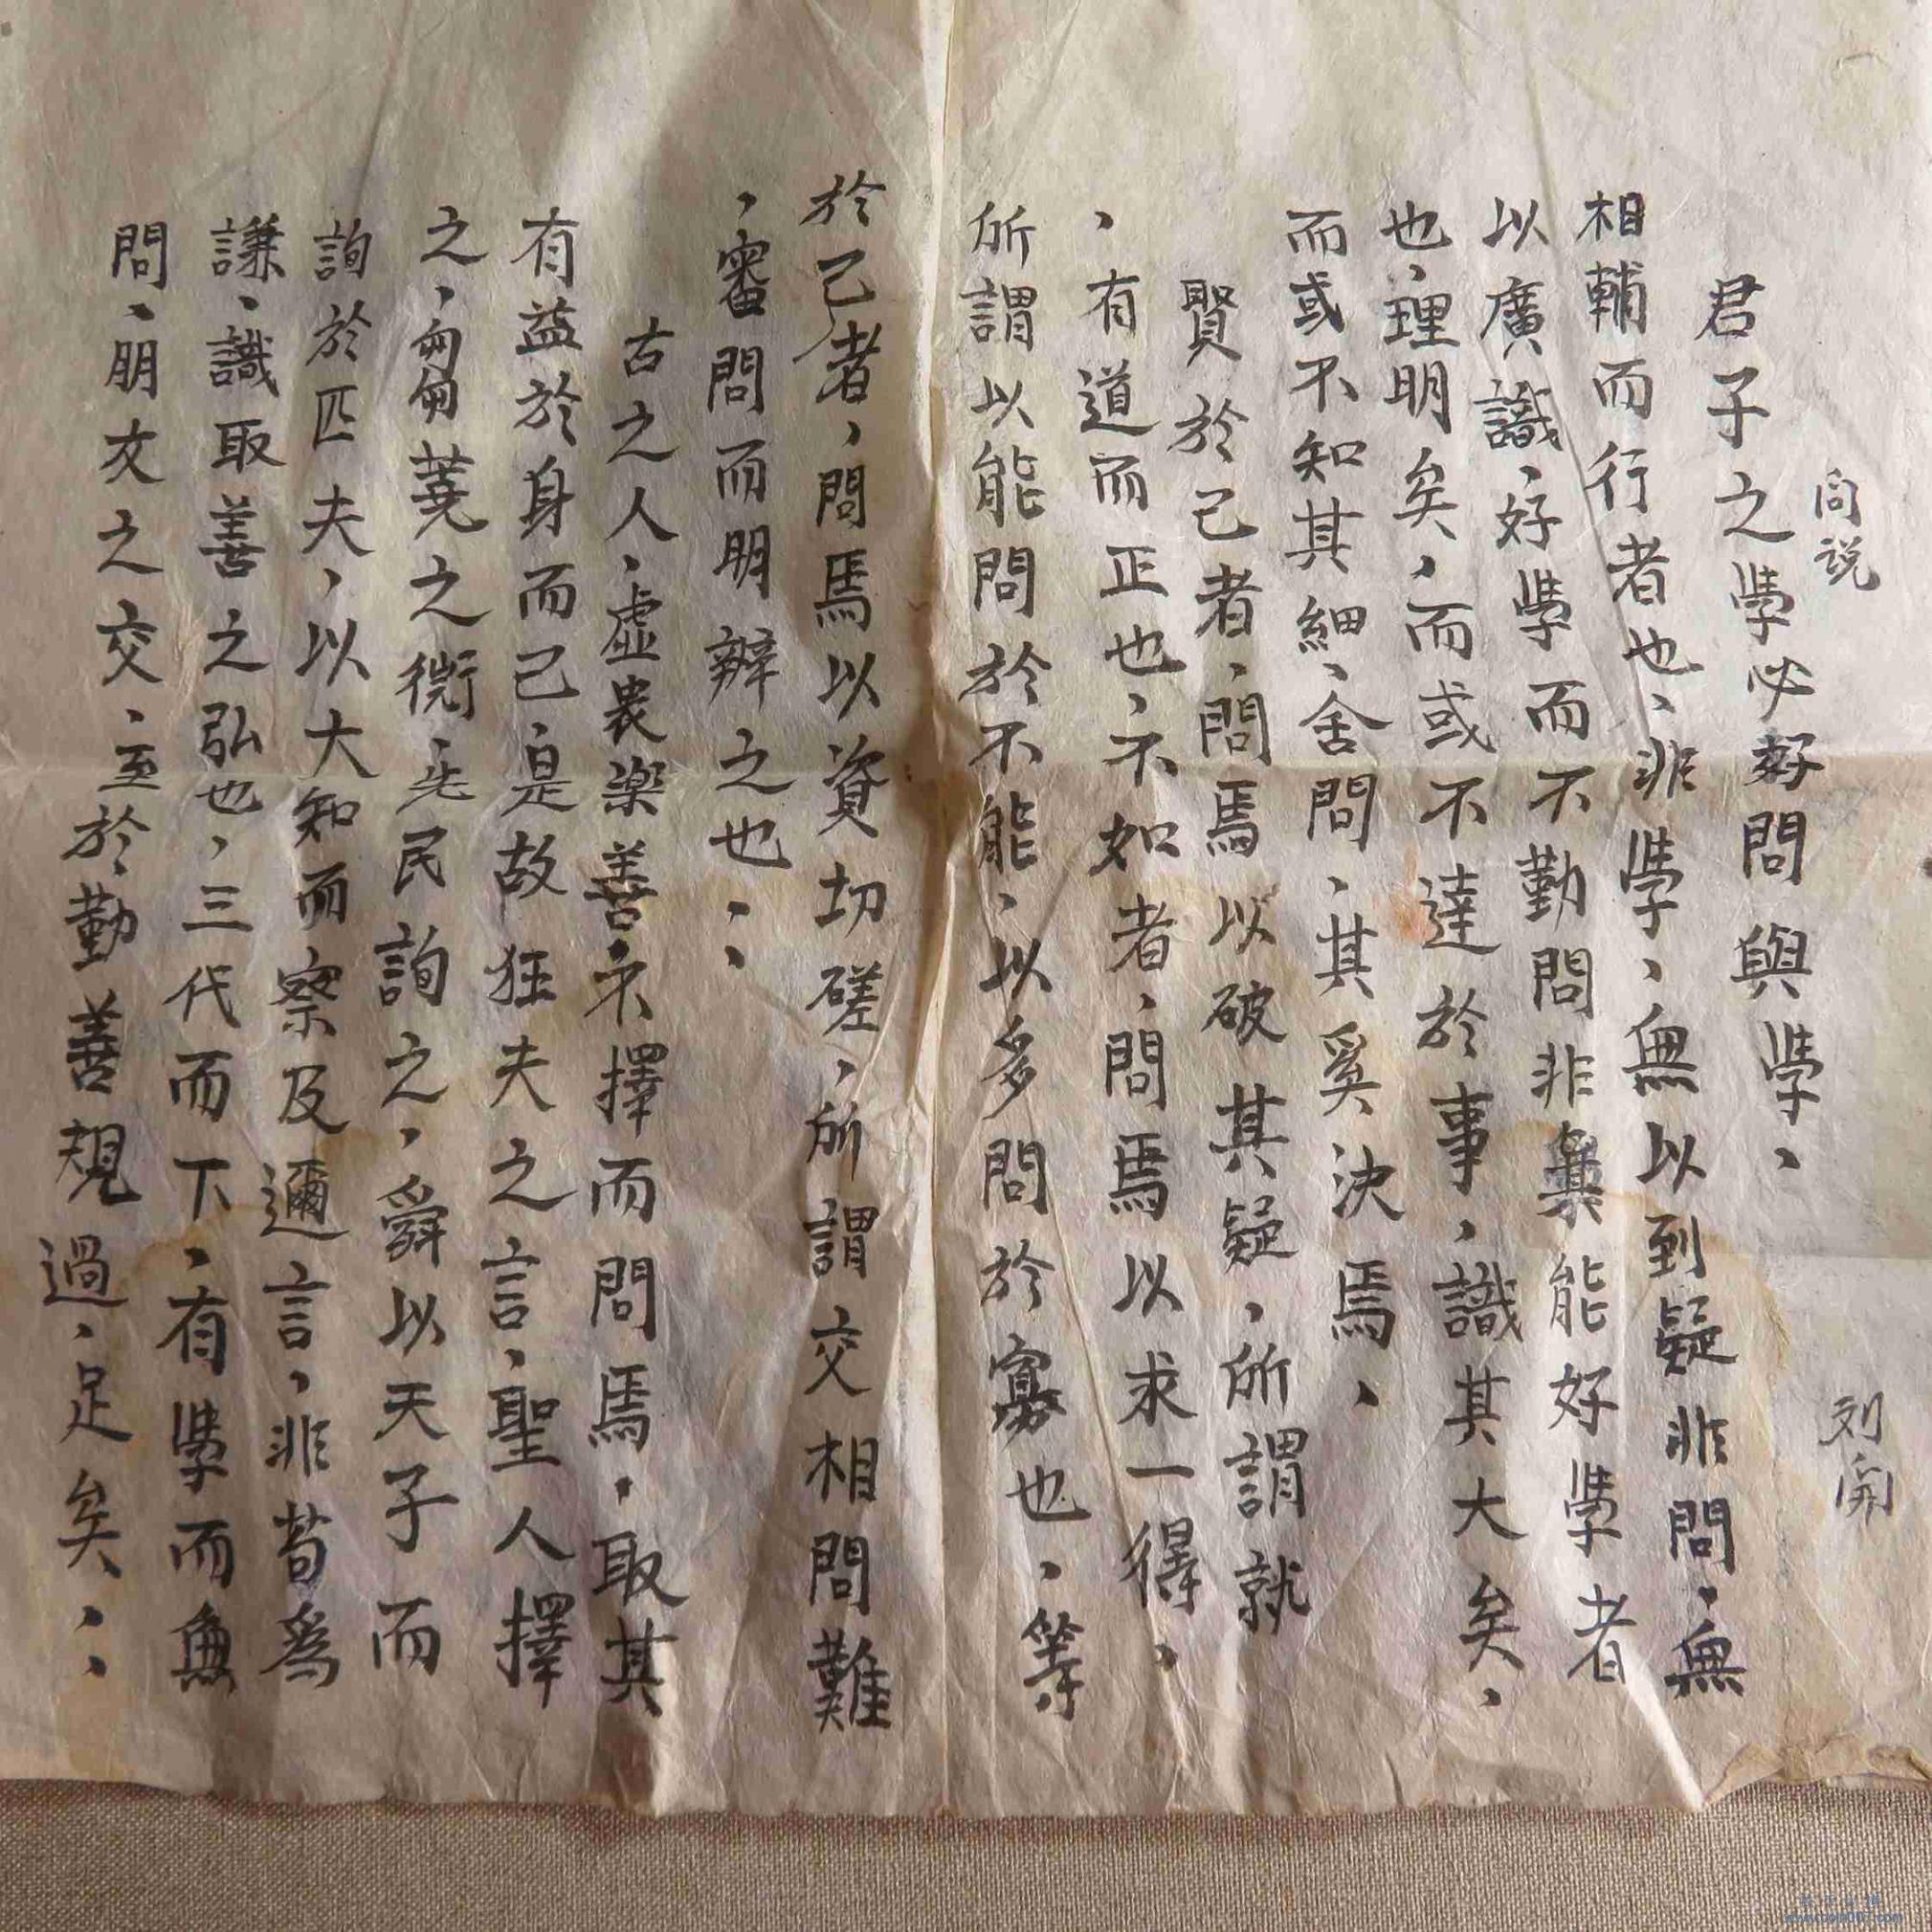 问说 刘开
君子之學必好問與學、
相輔而行者也、非學、無以到疑非問、無
以廣識、好學而不勤問非眞能好學者
也、理明矣、而或不達於事、識其大矣、
而或不知其細、舍問、其奚決焉、
賢於己者、問焉以破其疑、所謂就
、有道而正也、不如者、問焉以求一得、
所謂以能問於不能、以多問於寡也、等
於己者、問焉以資切磋、所謂交相問難
、審問而明辨之也、、
古之人、虛衷樂善不擇而問焉、取其
有益於身而己、是故狂夫之言、聖人擇
之、芻蕘之微、先民詢之、舜以天子而
詢於匹夫、以大知而察及邇言、非苟爲
謙、識取善之弘也、三代而下、有學而無
問、朋友之交、至於勤善規過、足矣、、